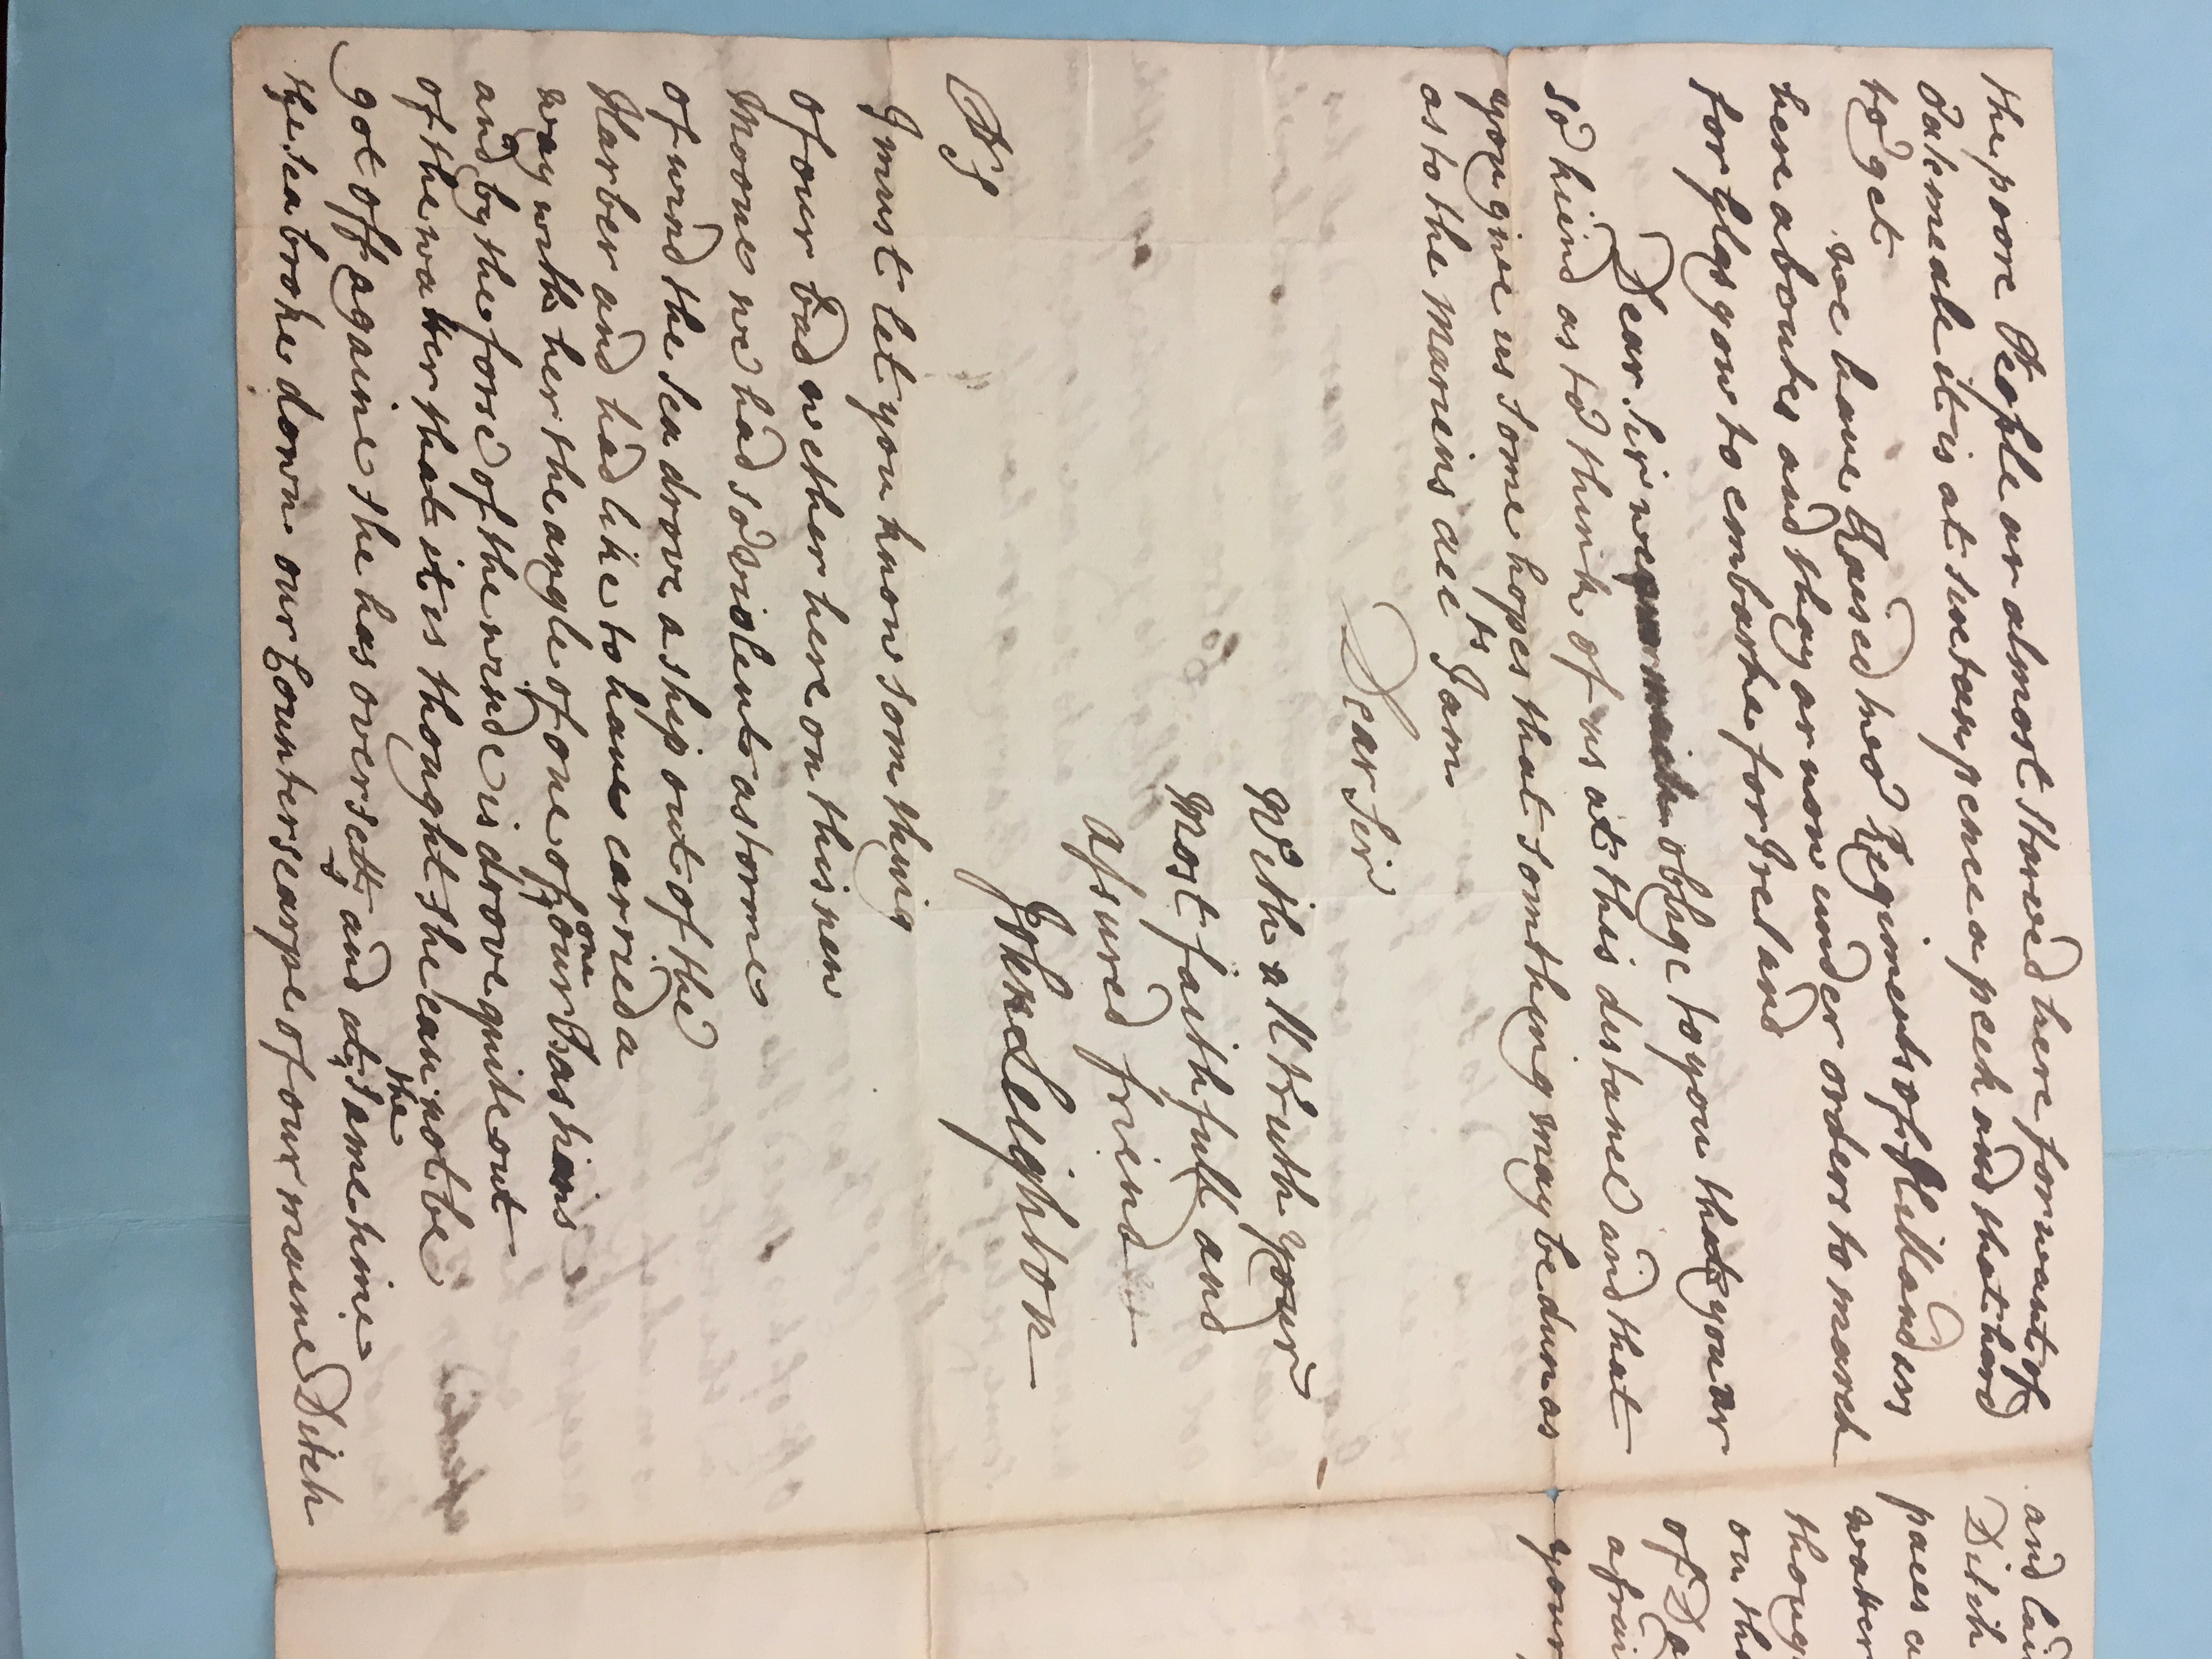 the poore People ar almost starved here for want of
oatemeale it is at sixteen pence a peck and that hard
to get
we have Raised two Regiments of Hillanders
here aboutes and thay ar now under orders to march
for Glasgow to embarke for Ireland
Dear Sir we oblige to you that you ar
so kiend as to think of us at this distance and that
you give us some hopes that somthing may be dun as
as to the mariens acc ts I am
Dear Sir
With all truth your
most faithfull and
assured friend
John Leighton
PS
I must let you know somthing
of our bad wether here on this new
moone we had so violent a storme
of wind the sea drove a ship out of the
Harber and had like to have carried a
way with her the angle of one of our one Bastians
and by the forse of the winde is drove quite out
of the watter that it is thought she can not be
got off againe she has oversett, and at the same time
the sea broke down our Counterscarpe of our maine Ditch
and lai
Ditch
paces a
watter
thoug
on the
of Da
afrai
your